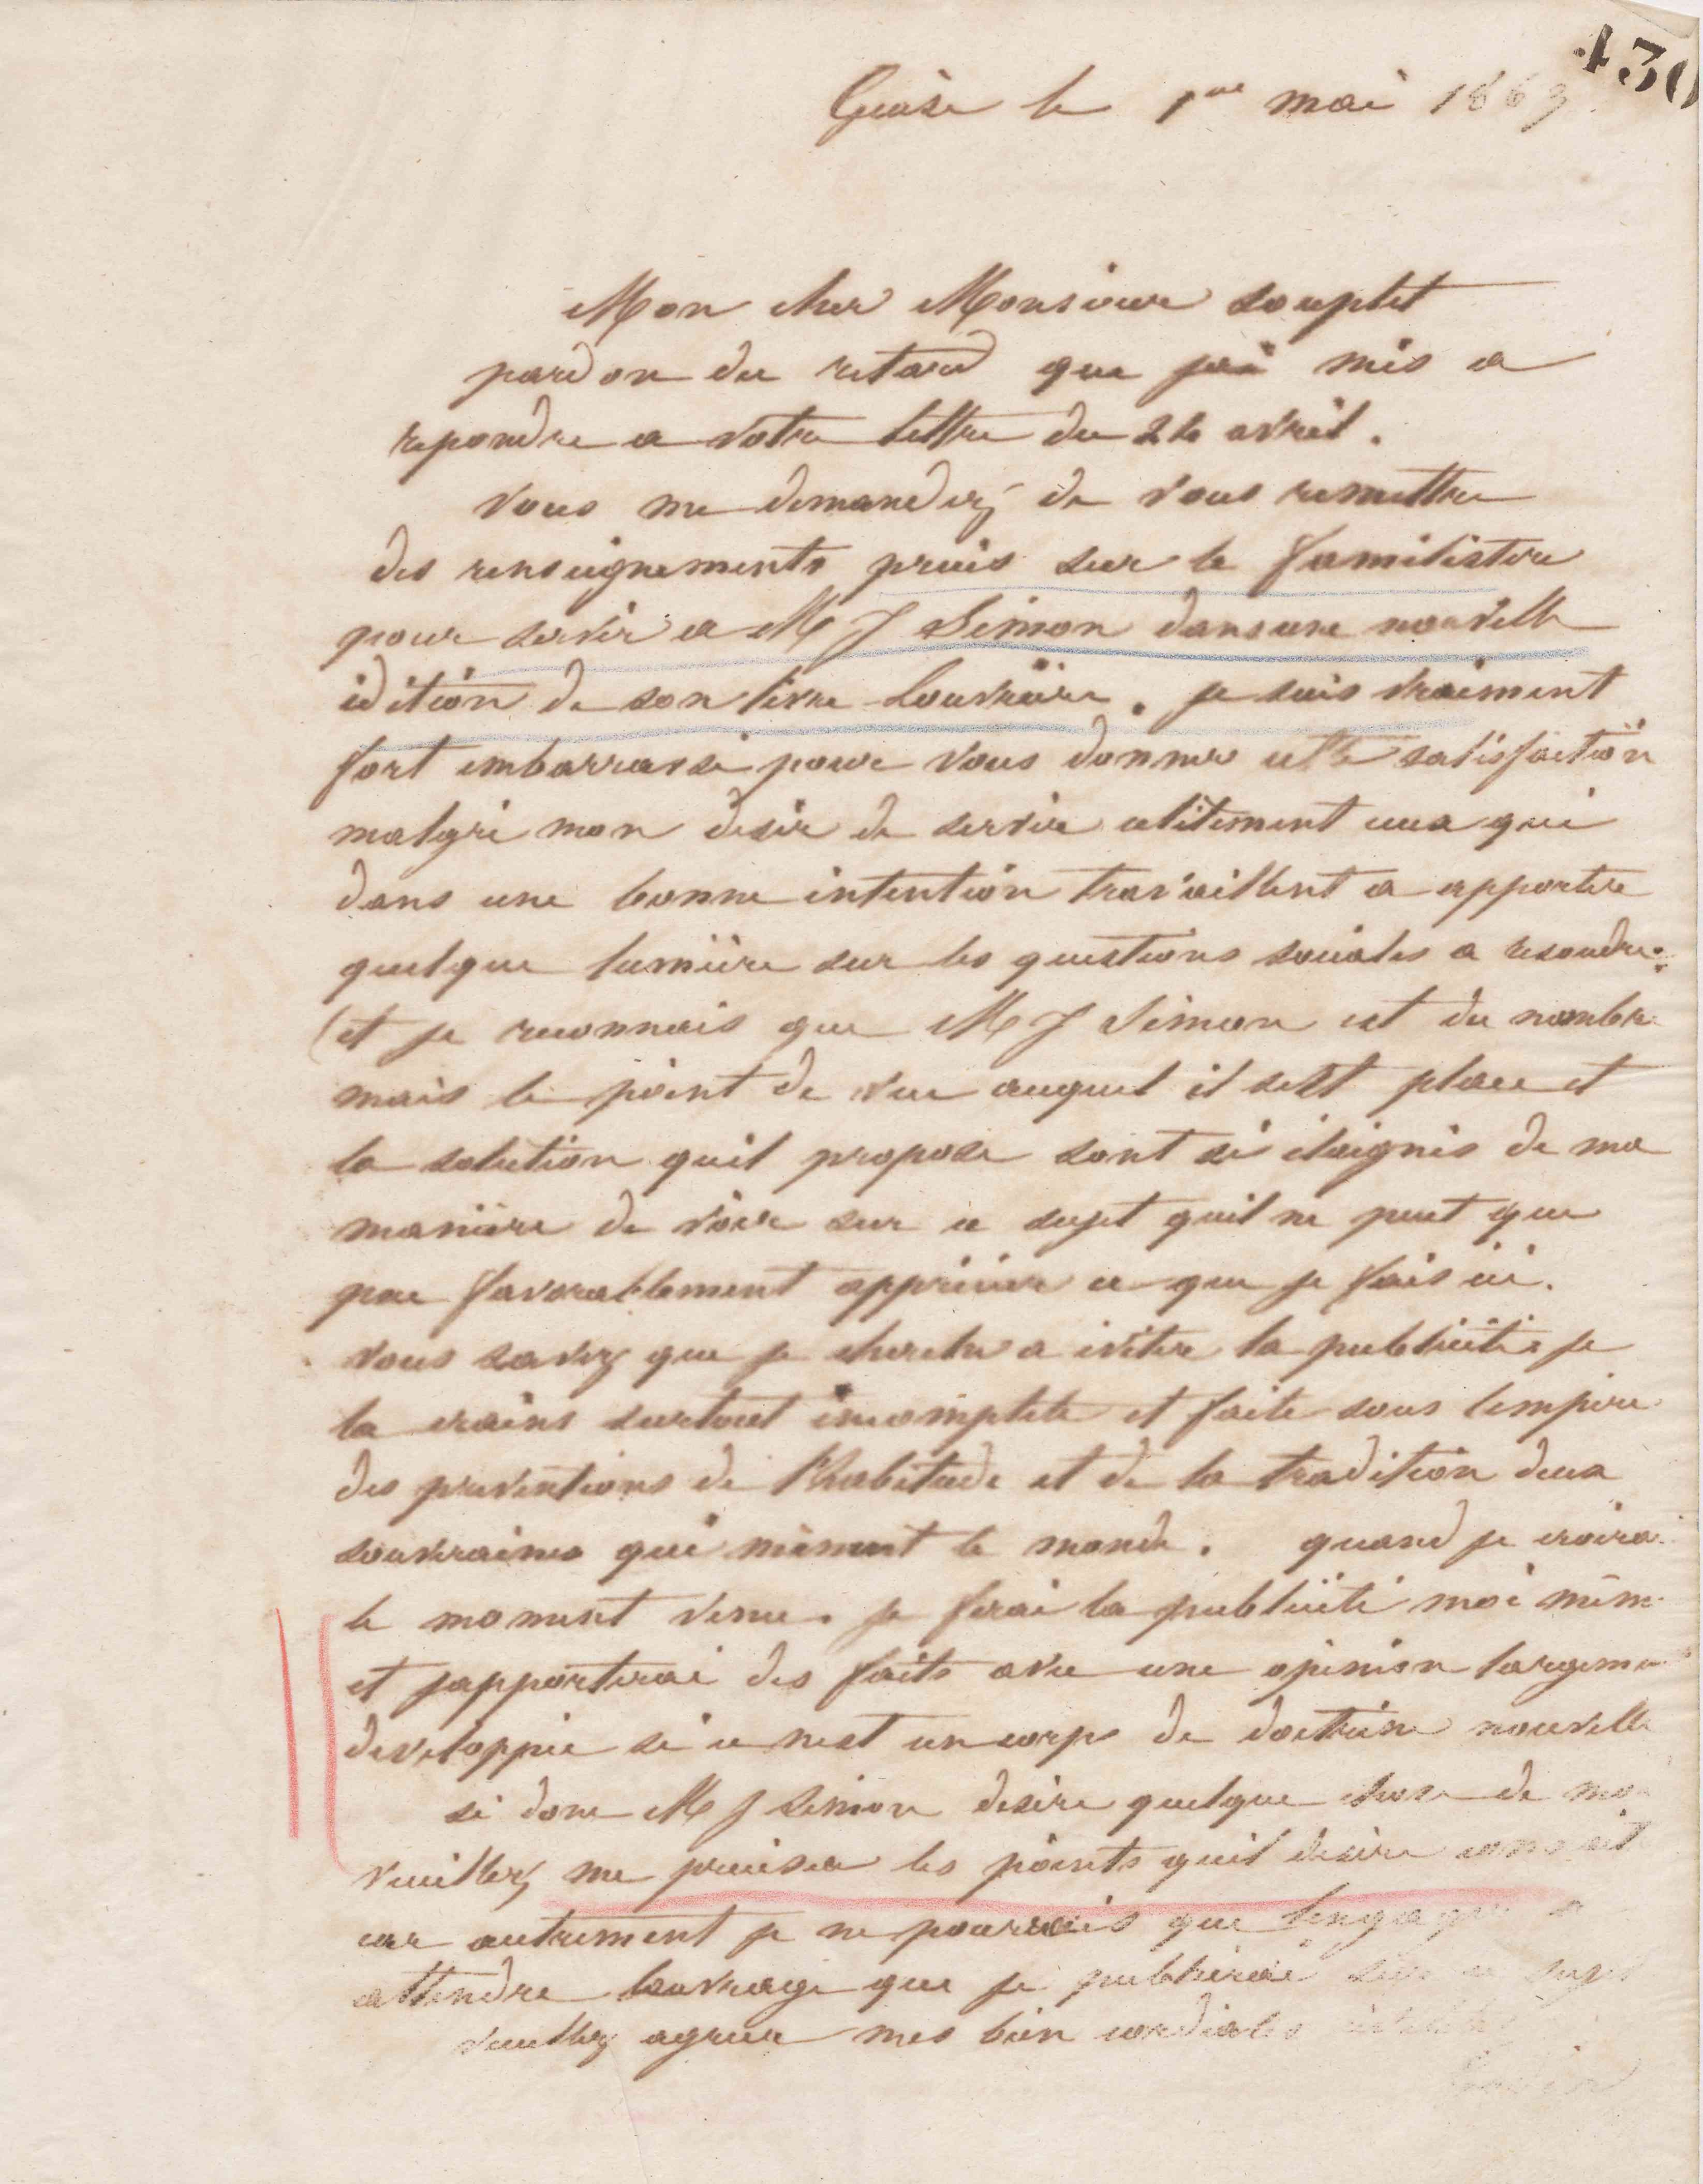 430
Guise le 1er mai 1863
Mon cher Monsieur Souplet
pardon du retard que jai mis a
repondre a votre lettre du 24 avril.
Vous me demandez de vous remettre
des renseignements precis sur le familistere
pour servir a M J Simon dans une nouvelle
édition de son livre Louvrière. je suis vraiment
fort embarrassé pour vous donner cette satisfaction
malgré mon desir de servir utilement ceux qui
dans une bonne intention travaillent a apporter
quelque lumière sur les questions sociales a resoudre.
(et je reconnais que M J Simon est du nombre
mais le point de vue auquel il sest place et
la solution quil propose sont si éloignés de ma
manière de voir sur ce sujet quil ne peut que
peu favorablement apprécier ce que je fais ici.
vous savez que je cherche a éviter la publicité. je
la crains surtout incomplete et faite sous lempire
des preventions de l'habitude et de la tradition deux
souveraines qui mènent le monde. quand je croirai
le moment venu. je ferai la publicité moi même
et japporterai des faits avec une opinion largement
developpée si ce nest un corps de doctrine nouvelle
si donc M J Simon desire quelque chose de moi
veuillez me preciser les points quil desire
car autrement je ne pourrais que lengager a
attendre louvrage que je publierai sur ce sujet
veuillez agreer mes bien cordiales
Godin